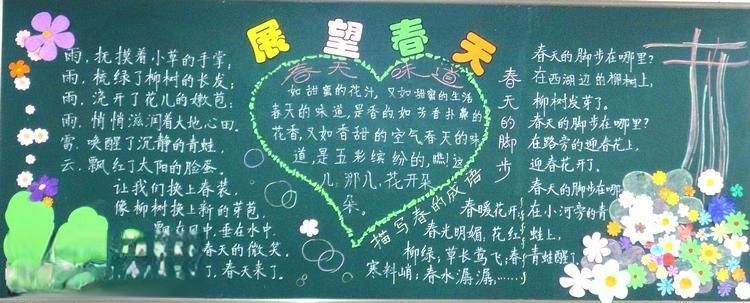 展望春天
雨,抚摸着小草的手掌;
雨,梳绿了柳树的长发;
雨,浇开了花儿的嫩苞;
雨,悄悄滋润着大地心田.
雷,唤醒了沉静的青蛙,
云,飘红了太阳的脸蛋.
让我们换上春装,
像柳树换上新的芽苞,
飘在风中,垂在水中.
春天的微笑,
了,春天来了.
春天味道
如甜蜜的花汁,又如甜蜜的生活
春天的味道,是香的如芳香扑鼻的
花香,又如香甜的空气春天的味
道,是五彩缤纷的,瞧!这
儿,那儿,花开朵
朵.
描写春的成语
春暖花开;
春光明媚;花红
柳绿;草长莺飞;春
寒料峭;春水潺潺,……
春天的脚步
春天的脚步在哪里?
在西湖边的柳树上,
柳树发芽了.
春天的脚步在哪里?
在路旁的迎春花上,
迎春花开了.
春天的脚步在哪里?
在小河旁的青
蛙上,
青蛙醒了